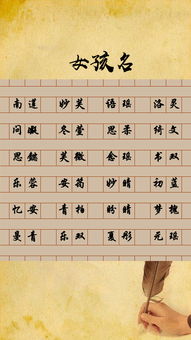 女孩名
南莲 妙芙 语瑶 洛灵
问凝 冬萱 思柔 绮文
思懿 芙微 念瑶 书双
乐蓉 安筠 妙晴 初蓝
忆安 青柏 盼晴 梦槐
曼青 乐双 夏彤 元瑶